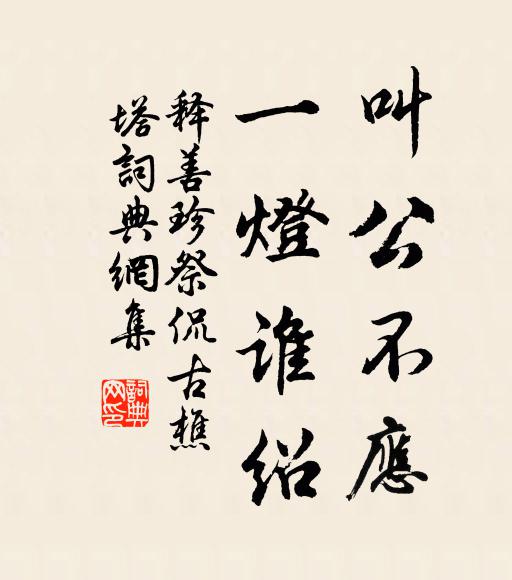 叫公不應
一燈誰紹
释善珍祭侃古樵
塔詞典網集
詞典网印